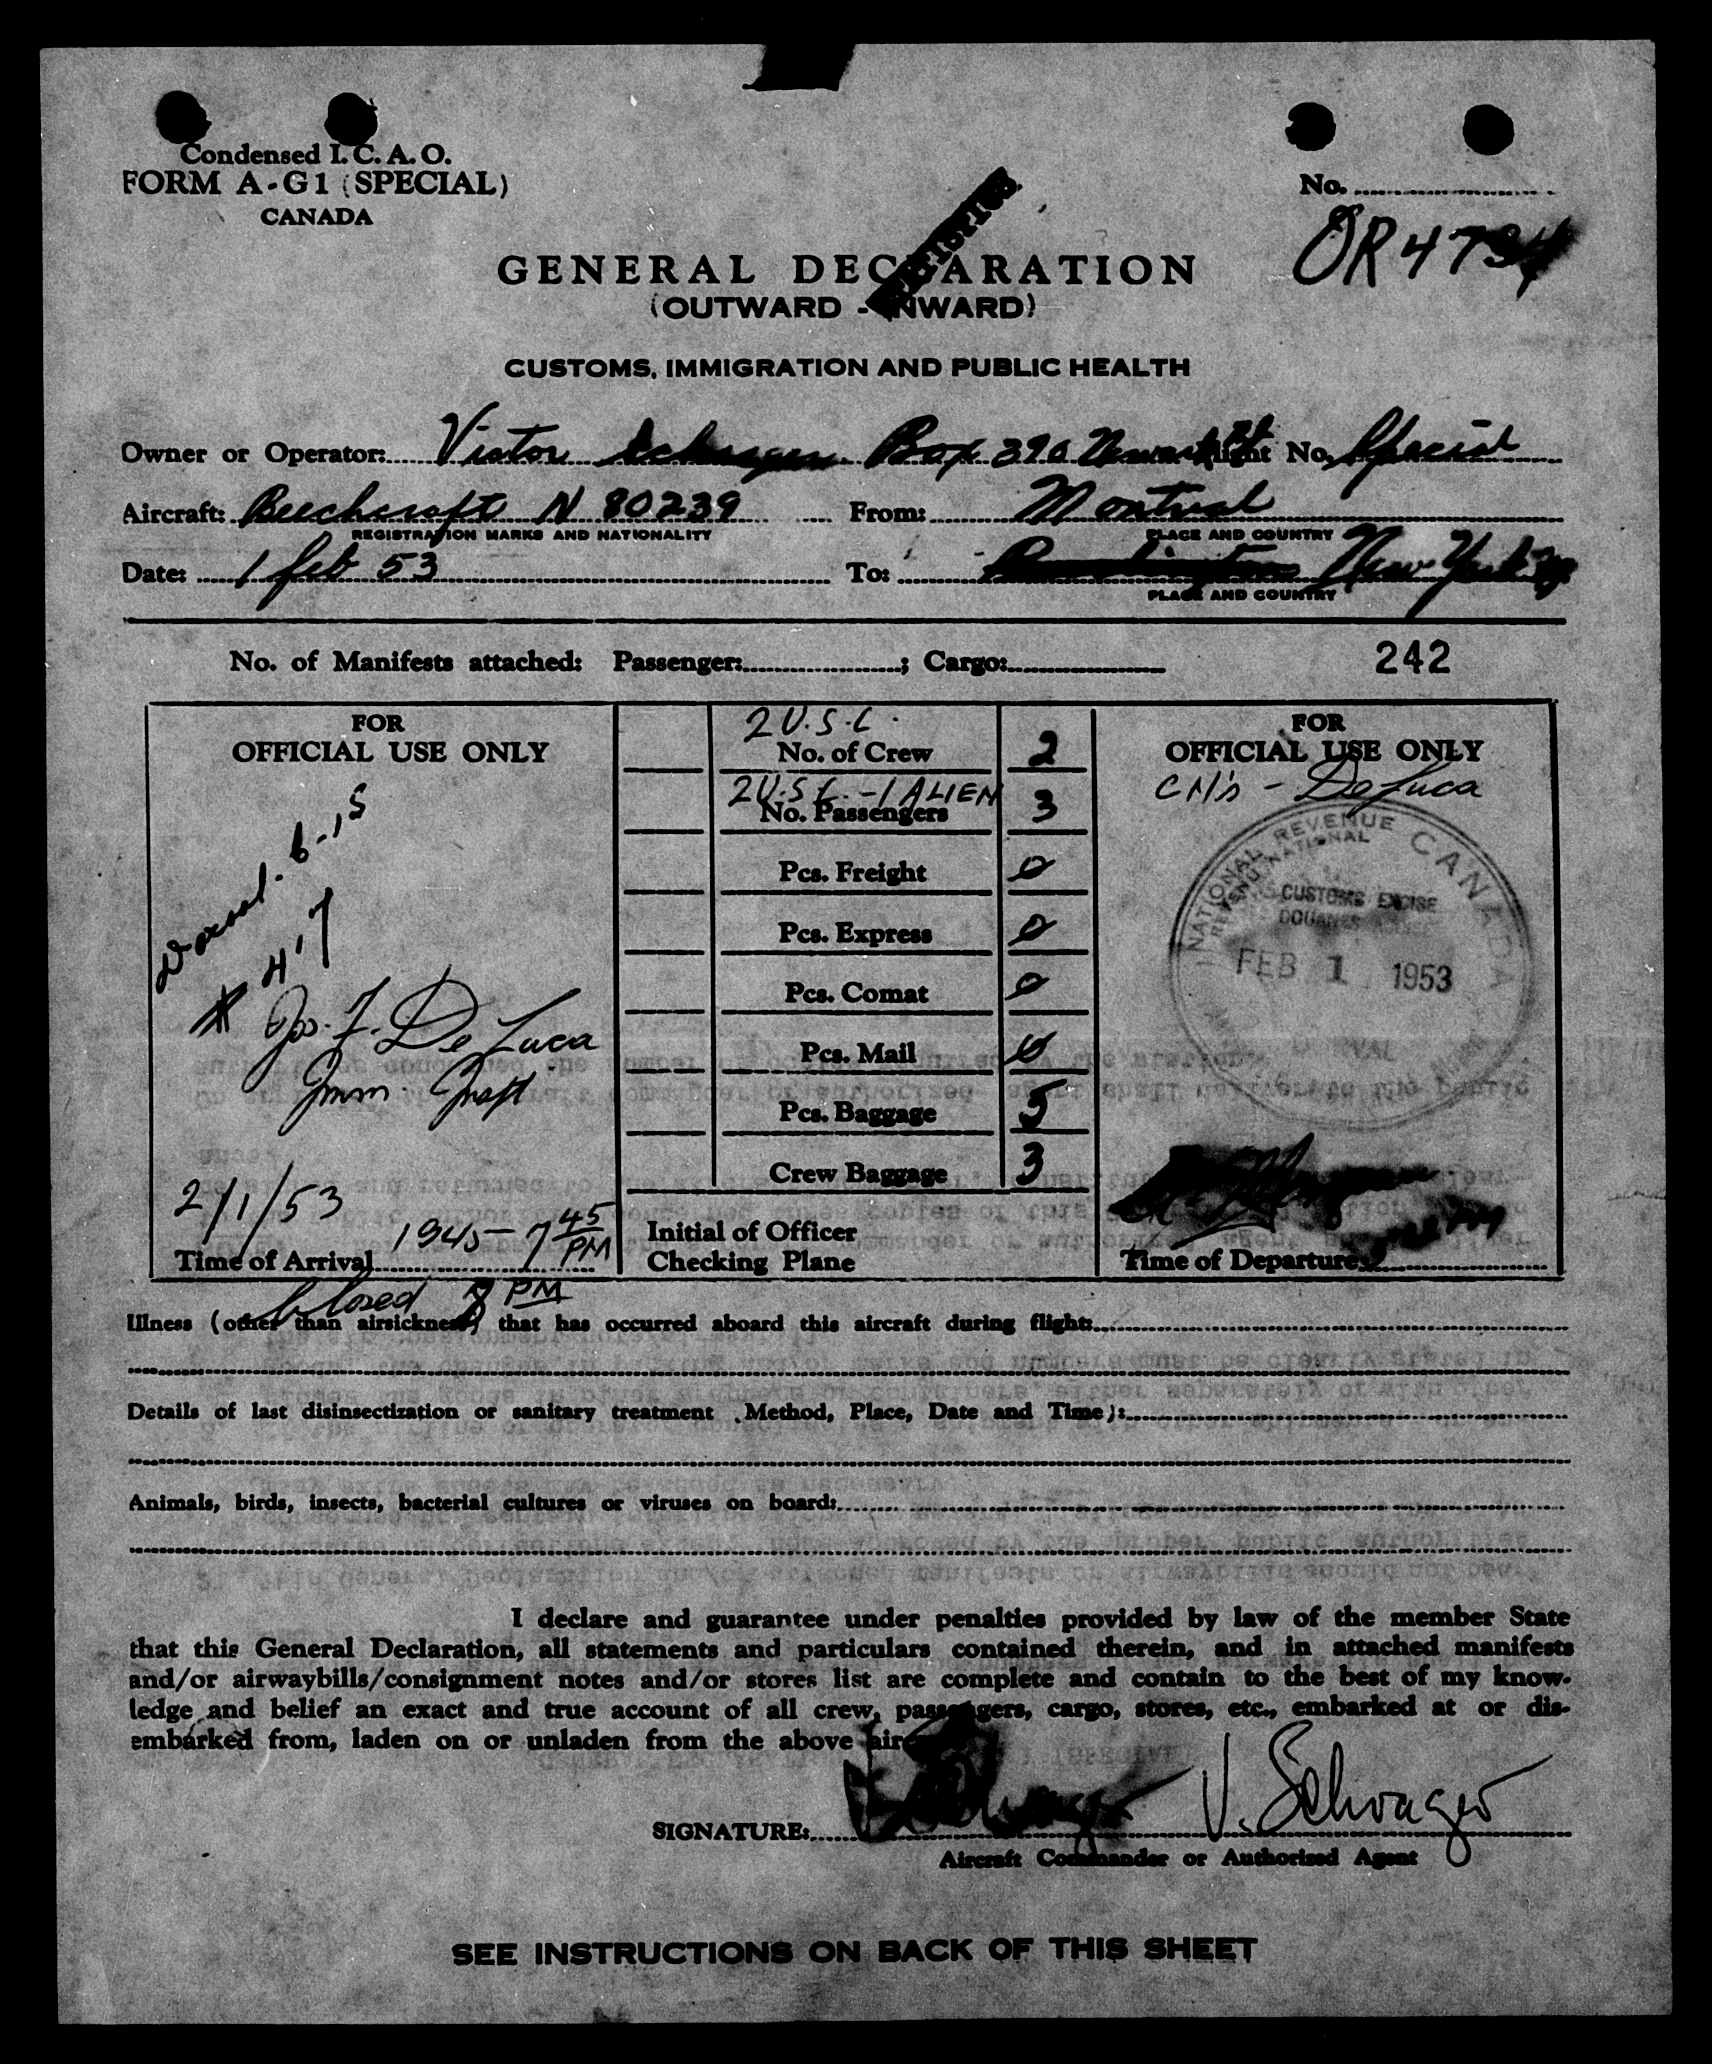 Condensed I. C. A. O.
FORM A-G1 (SPECIAL)
CANADA
No.
OR 4734
GENERAL DECLARATION
(OUTWARD - INWARD)
CUSTOMS, IMMIGRATION AND PUBLIC HEALTH
Owner or Operator: Victor Schrager Box 390 Newark Flight No. Special
Aircraft: Beechcraft N 80239 From: Montreal
REGISTRATION MARKS AND NATIONALITY PLACE AND COUNTRY
Date: 1 feb 53 To: New York
PLACE AND COUNTRY
No. of Manifests attached: Passenger: ; Cargo: 242
FOR
OFFICIAL USE ONLY
6-15
# 417
Jos. F. De Luca
Imm. Inspt
2/1/53
1945 - 7 45 PM
Time of Arrival
Closed 8 PM
2 U.S.C.
No. of Crew 2
2 U.S.C. - 1 ALIEN
No. Passengers 3
Pcs. Freight 0
Pcs. Express 0
Pcs. Comat 0
Pcs. Mail 0
Pcs. Baggage 5
Crew Baggage 3
Initial of Officer
Checking Plane
FOR
OFFICIAL USE ONLY
De Luca
NATIONAL REVENUE CANADA
REVENU NATIONAL
CUSTOMS EXCISE
DOUANES ACCISE
FEB 1 1953
Time of Departure
Illness (other than airsickness) that has occurred aboard this aircraft during flight:
Details of last disinsectization or sanitary treatment (Method, Place, Date and Time):
Animals, birds, insects, bacterial cultures or viruses on board:
I declare and guarantee under penalties provided by law of the member State
that this General Declaration, all statements and particulars contained therein, and in attached manifests
and/or airwaybills/consignment notes and/or stores list are complete and contain to the best of my know-
ledge and belief an exact and true account of all crew, passengers, cargo, stores, etc., embarked at or dis-
embarked from, laden on or unladen from the above
SIGNATURE: V. Schrager
Aircraft Commander or Authorized Agent
SEE INSTRUCTIONS ON BACK OF THIS SHEET